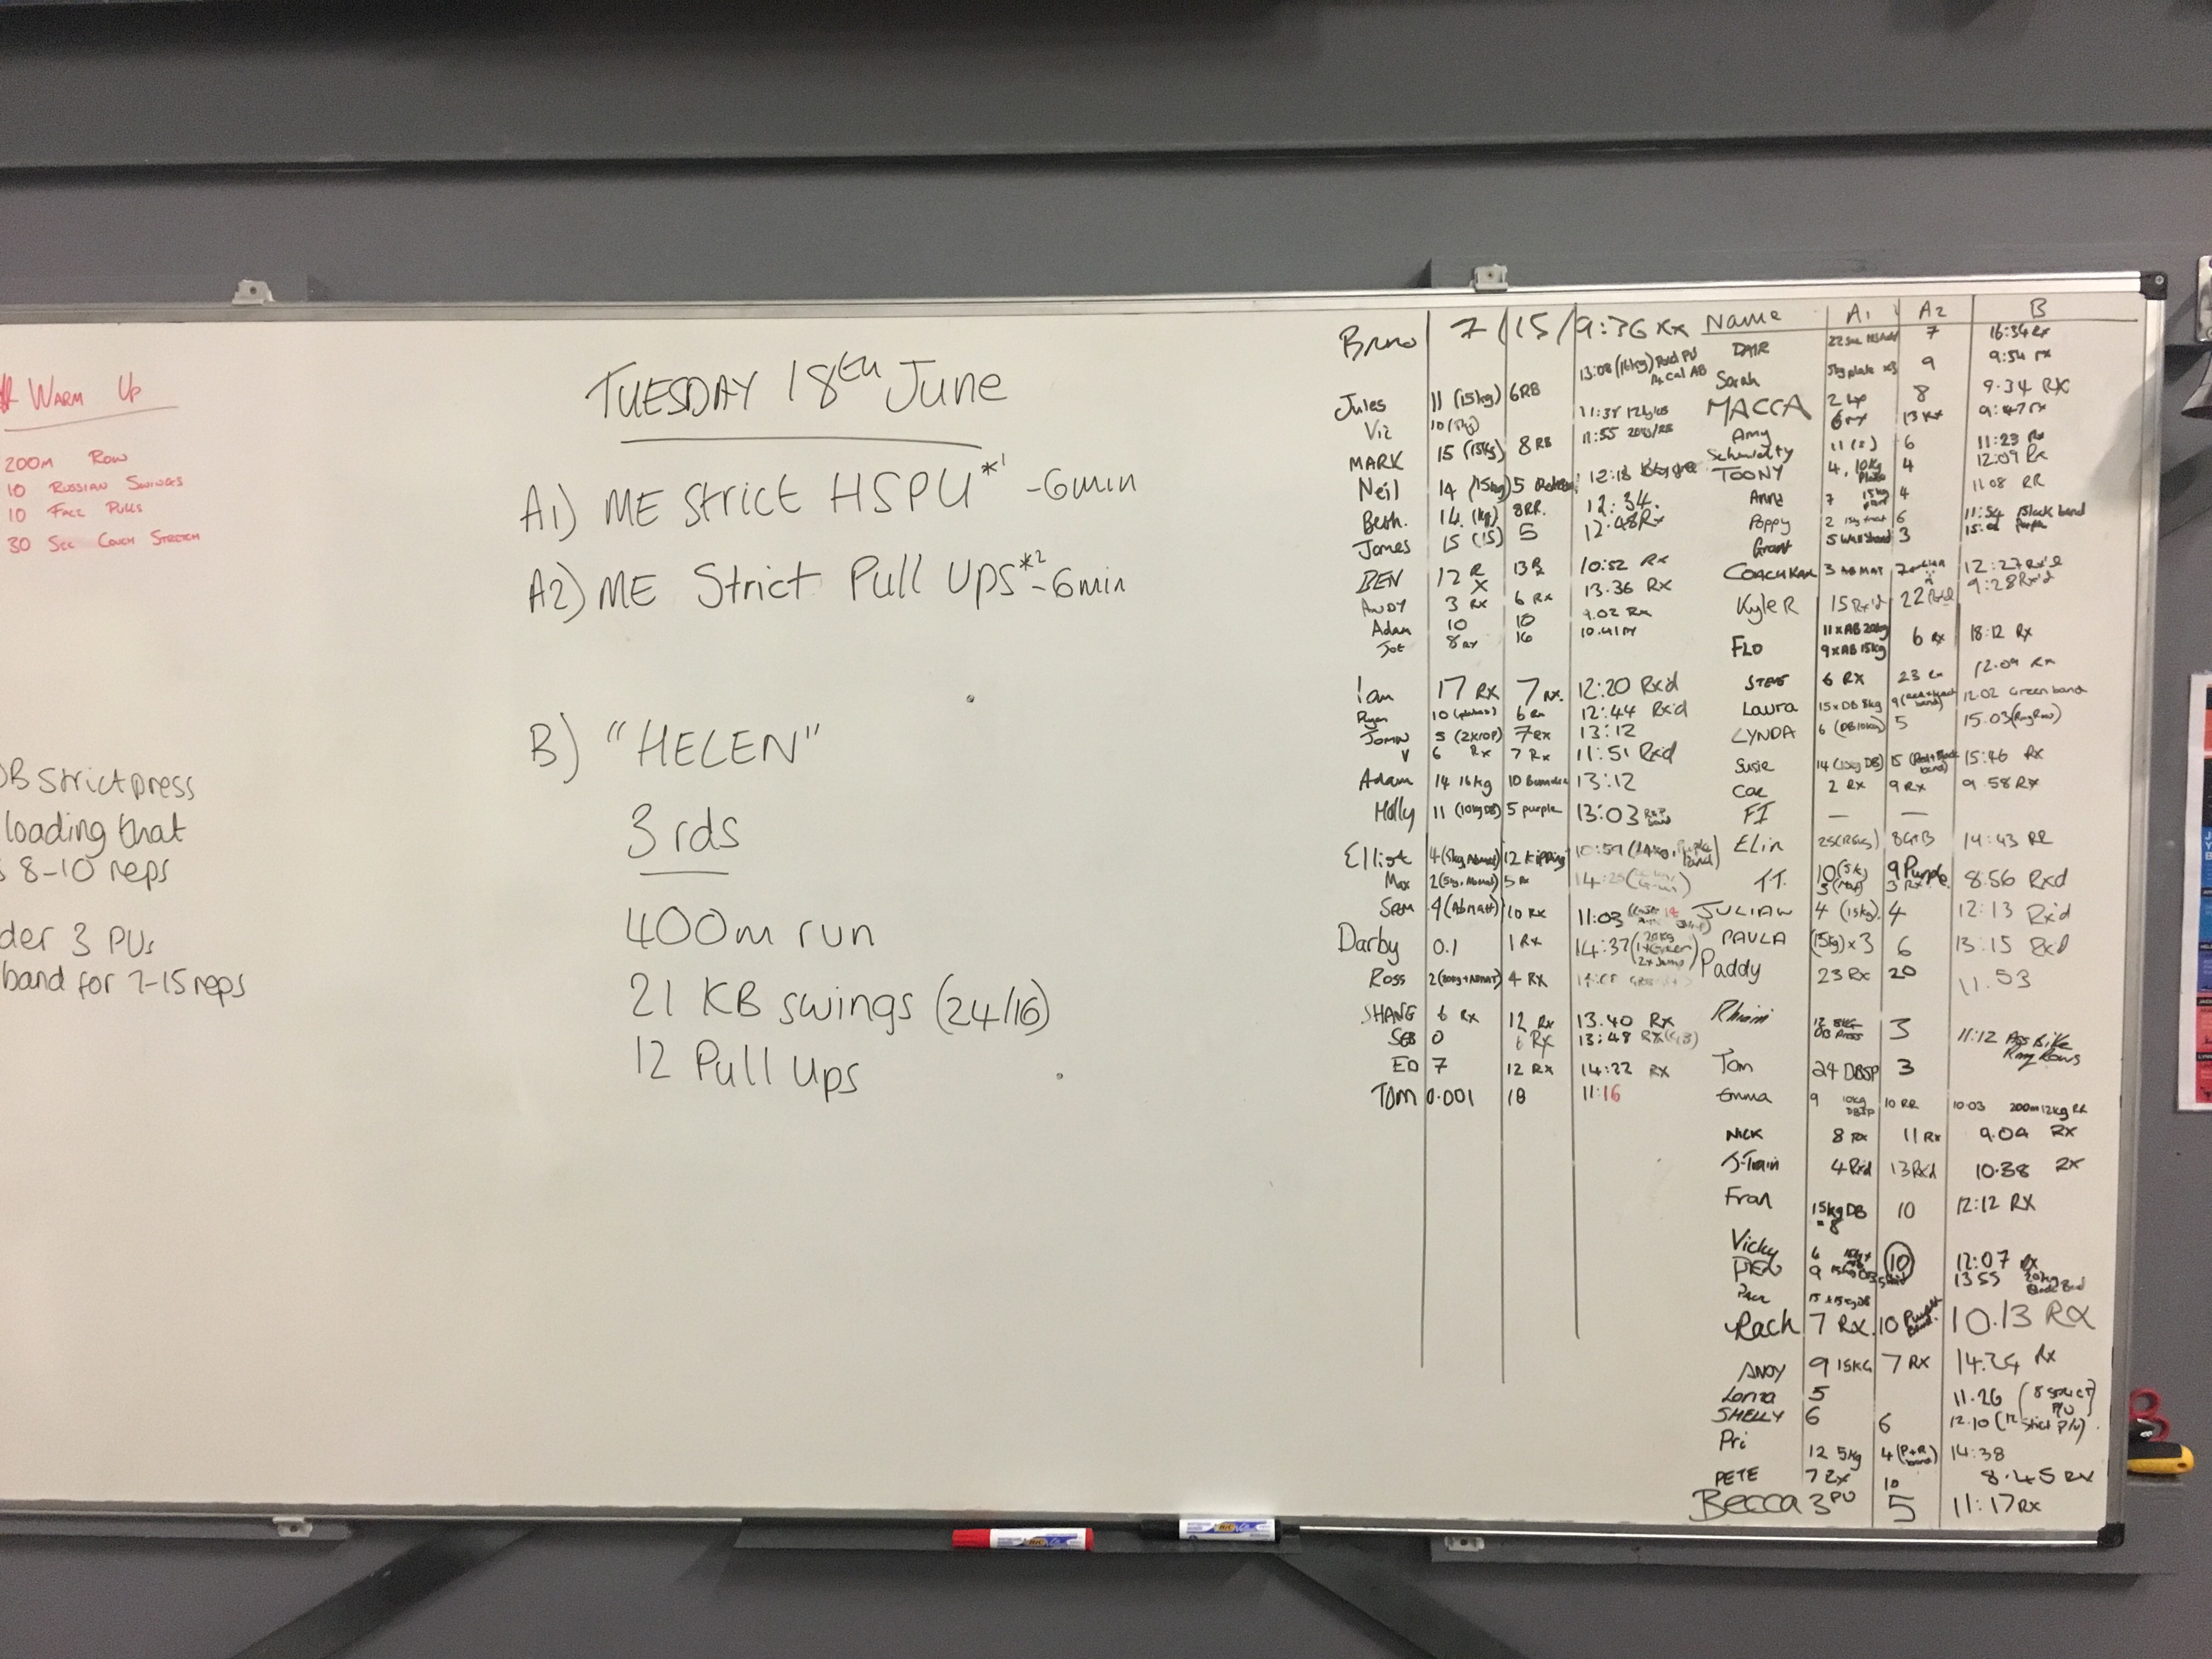 WARM UP
200m Row
10 RUSSIAN SWINGS
10 FACE PULLS
30 SEC COUCH STRETCH
DB Strict press
loading that
8-10 reps
der 3 PUs
band for 7-15 reps
TUESDAY 18TH June
A1) ME Strict HSPU*1 -6min
A2) ME Strict Pull Ups*2 -6min
B) "HELEN"
3 rds
400m run
21 KB swings (24/16)
12 Pull Ups
Bruno 7 15 9:36 Rx
13:08 (16kg)
Jules 11 (15kg) 6RB
Viz 10
MARK 15 (15kg) 8 RB 11:55
Neil 14 (15kg) 5 12:18
Beth. 14 (kg) 8RR. 12:34.
James 15 (15) 5 12:48Rx
BEN 12 RX 13 Rx 10:52 Rx
ANDY 3 Rx 6 Rx 13.36 Rx
Adam 10 10 9.02 Rx
Joe 8 Rx 16 10.41 Rx
Ian 17 Rx 7 Rx. 12:20 Rx'd
Ryan 10 6 Rx 12:44 Rx'd
JOHN 5 7 Rx 13:12
V 6 Rx 7 Rx 11:51 Rx'd
Adam 14 16kg 10 13:12
Holly 11 (10kg DB) 5 purple 13:03
Elliot 4 (5kg Abmat) 12 Kipping 10:59 band)
Max 2 (5kg, Abmat) 5 Rx
SAM 4 (Abmatt) 10 Rx 11:03
Darby 0.1 1 Rx 14:37
Ross 2 4 Rx
SHANG 6 Rx 12 Rx 13.40 Rx
SEB 0 6 Rx 13:48 Rx
ED 7 12 Rx 14:22 Rx
TOM 0.001 18 11:16
Name A1 A2 B
7 16:34 Rx
Sarah 5kg plate x3 9 9:54 rx
MACCA 2 8 9.34 RX
Amy 6 rx 13 Rx 9:47 rx
Schmidty 11 6 11:23 Rx
TOONY 4, 10kg Plate 4 12:09 Rx
Anna 7 15kg 4 11 08 RR
Poppy 2 6 11:54 Black band
Grant 5 3
COACH KAR 3 AB MAT 12:27 Rx'd
Kyle R 15 Rx'd 22 Rx'd 9:28 Rx'd
FLO 11 x AB 20kg 6 Rx 18:12 Rx
9 x AB 15kg
STEVE 6 RX 23 12.09 Rx
Laura 15 x DB 8kg 9 12:02 Green band
LYNDA 6 (DB 10kg) 5 15.03 (Ring Row)
Susie 14 15 (Red + Black band) 15:46 Rx
Cae 2 Rx 9 Rx 9.58 Rx
FI — —
Elin 14:43 RR
T.T. 10 (5kg) 9 Purple 8:56 Rxd
3 Rx
JULIAN 4 (15kg) 4 12:13 Rx'd
PAULA (15kg) x 3 6 13:15 Rxd
Paddy 23 Rx 20 11.53
Rhian 12 8KG DB Press 3 11:12 Ass Bike
Ring Rows
Tom 24 DBSP 3
Emma 9 10kg 10 RR 10:03 200m 12kg RR
NICK 8 Rx 11 Rx 9.04 Rx
J-Train 4 Rxd 13 Rxd 10.38 Rx
Fran 15kg DB = 8 10 12:12 RX
Vicky 6 10 12:07 Rx
9 13 55 20kg
15 x 15kg DB
Rach 7 RX 10 Purple Band. 10.13 RX
ANDY 9 15KG 7 RX 14.24 Rx
Lorna 5 11.26 (8 STRICT P/U)
SHELLY 6 6 12.10 (12 Strict P/U)
Pri 12 5kg 4 (P+R band) 14:38
PETE 7 Rx 10 8.45 RX
Becca 3 PU 5 11:17 Rx